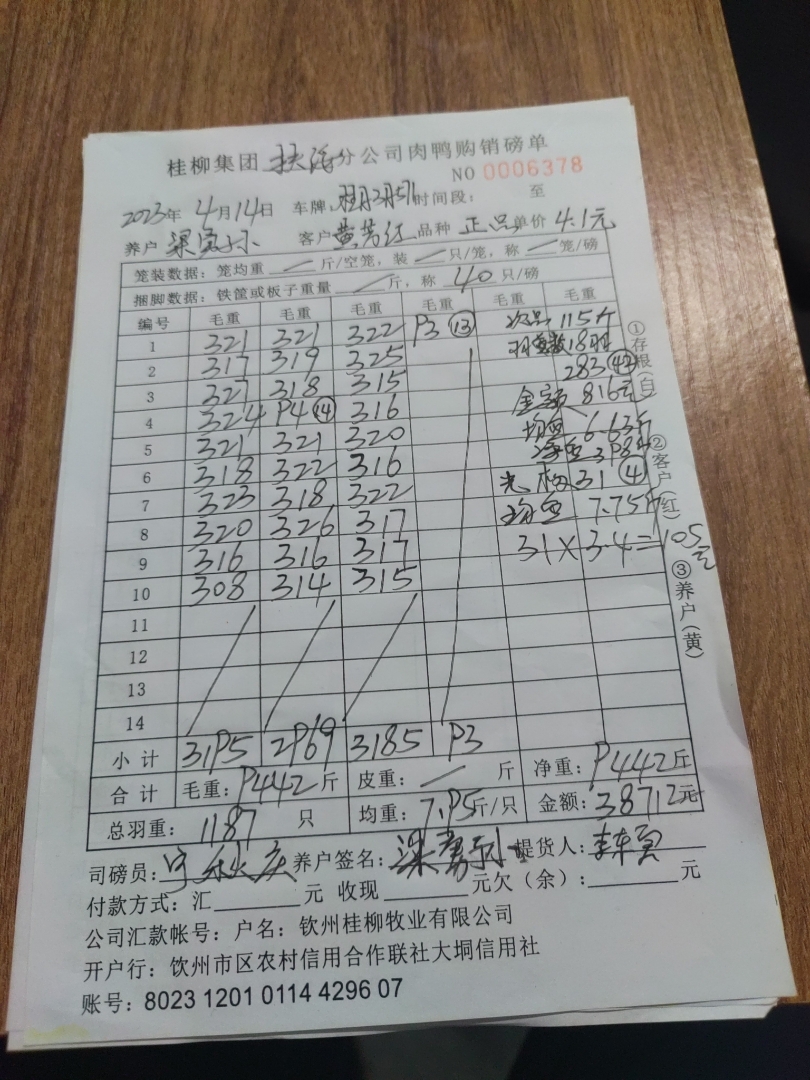 桂柳集团 扶海 分公司肉鸭购销磅单
NO 0006378
2023年 4月14日 车牌: 时间段: 至
养户 客户 黄芳红 品种 正品 单价 4.1元
笼装数据: 笼均重 / 斤/空笼, 装 / 只/笼, 称 / 笼/磅
捆脚数据: 铁筐或板子重量 / 斤, 称 40 只/磅
编号 毛重 毛重 毛重 毛重 毛重 毛重
1 321 321 322 P3 ⑬ 次品 115斤
2 317 319 325 18羽
3 327 318 315 283
4 324 P4 ⑭ 316 金额 816元
5 321 321 320 均重 6.63斤
6 318 322 316
7 323 318 322 31 ④
8 320 326 317 均重 7.75斤
9 316 316 317 31×3.4=105元
10 308 314 315
11
12
13
14
小计 31P5 2P69 3185 P3
合计 毛重: P442斤 皮重: / 斤 净重: P442斤
总羽重: 1187 只 均重: 7.P5斤/只 金额: 38712元
司磅员: 养户签名: 提货人:
付款方式: 汇 元 收现 元欠(余): 元
公司汇款帐号: 户名: 钦州桂柳牧业有限公司
开户行: 钦州市区农村信用合作联社大垌信用社
账号: 8023 1201 0114 4296 07
①存根(白) ②客户(红) ③养户(黄)